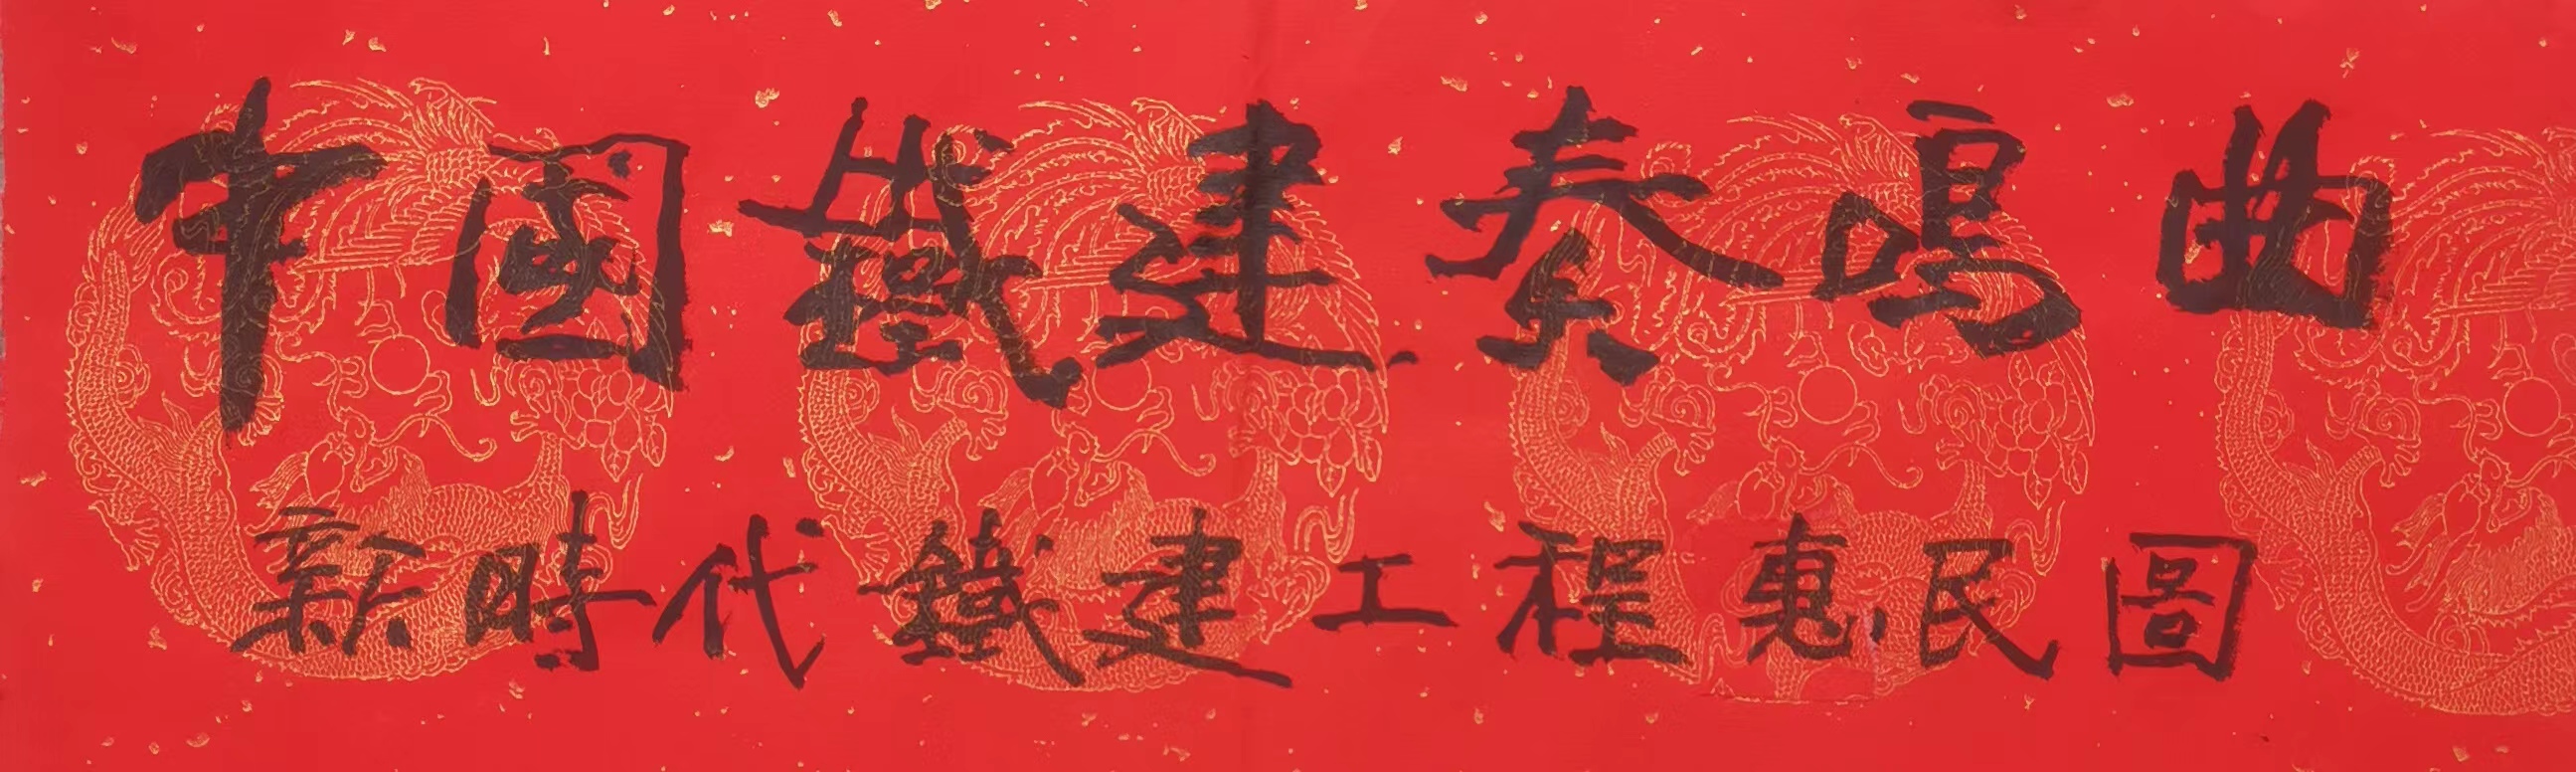 中國鐵建奏鳴曲
新時代鐵建工程惠民圖